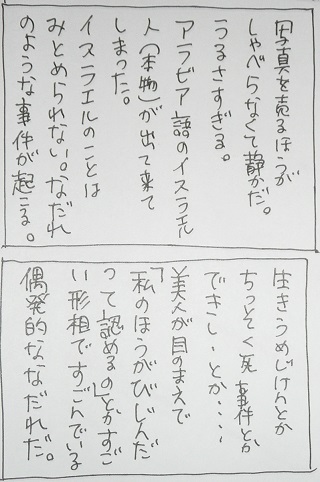 写真を売るほうが
しゃべらなくて静かだ。
うるさすぎる。
アラビア語のイスラエル
人(本物)が出て来て
しまった。
イスラエルのことは
みとめられない。なだれ
のような事件が起こる。
生きうめじけんとか
ちっそく死事件とか
できし、とか....
美人が目のまえで
「私のほうがびじんだ
って認めるの」とかすご
い形相ですごんでいる
偶発的ななだれだ。